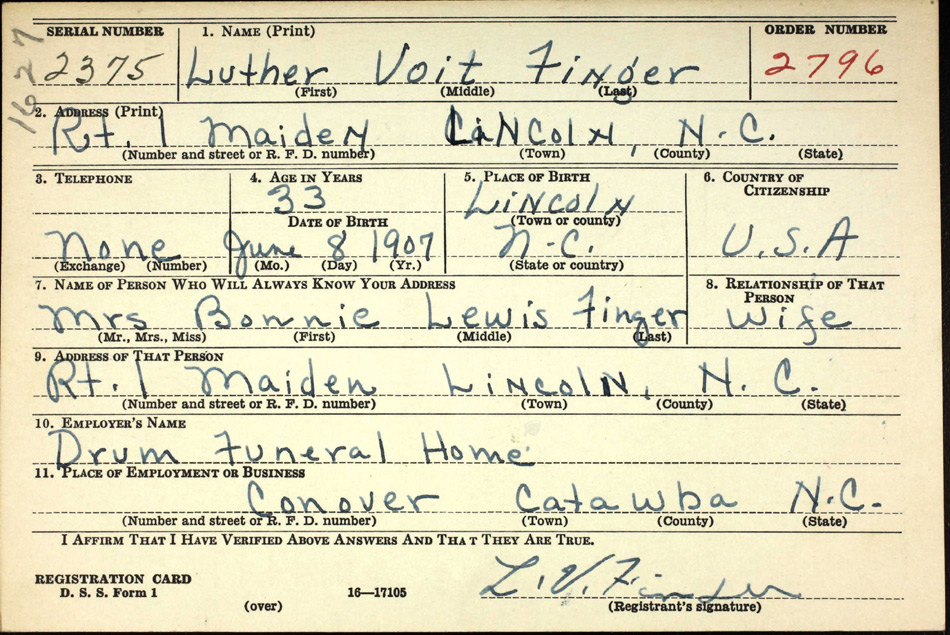 SERIAL NUMBER 1. NAME (Print) ORDER NUMBER
1627
2375 Luther Voit Finger 2796
(First) (Middle) (Last)
2. ADDRESS (Print)
Rt. 1 Maiden Lincoln, N.C.
(Number and street or R. F. D. number) (Town) (County) (State)
3. TELEPHONE 4. AGE IN YEARS 5. PLACE OF BIRTH 6. COUNTRY OF
CITIZENSHIP
33 Lincoln
DATE OF BIRTH (Town or county)
None June 8 1907 N.C. U.S.A
(Exchange) (Number) (Mo.) (Day) (Yr.) (State or country)
7. NAME OF PERSON WHO WILL ALWAYS KNOW YOUR ADDRESS 8. RELATIONSHIP OF THAT
PERSON
Mrs Bonnie Lewis Finger Wife
(Mr., Mrs., Miss) (First) (Middle) (Last)
9. ADDRESS OF THAT PERSON
Rt. 1 Maiden Lincoln, N. C.
(Number and street or R. F. D. number) (Town) (County) (State)
10. EMPLOYER'S NAME
Drum Funeral Home
11. PLACE OF EMPLOYMENT OR BUSINESS
Conover Catawba N.C.
(Number and street or R. F. D. number) (Town) (County) (State)
I AFFIRM THAT I HAVE VERIFIED ABOVE ANSWERS AND THAT THEY ARE TRUE.
L.V. Finger
REGISTRATION CARD
D. S. S. Form 1 16—17105 (Registrant's signature)
(over)